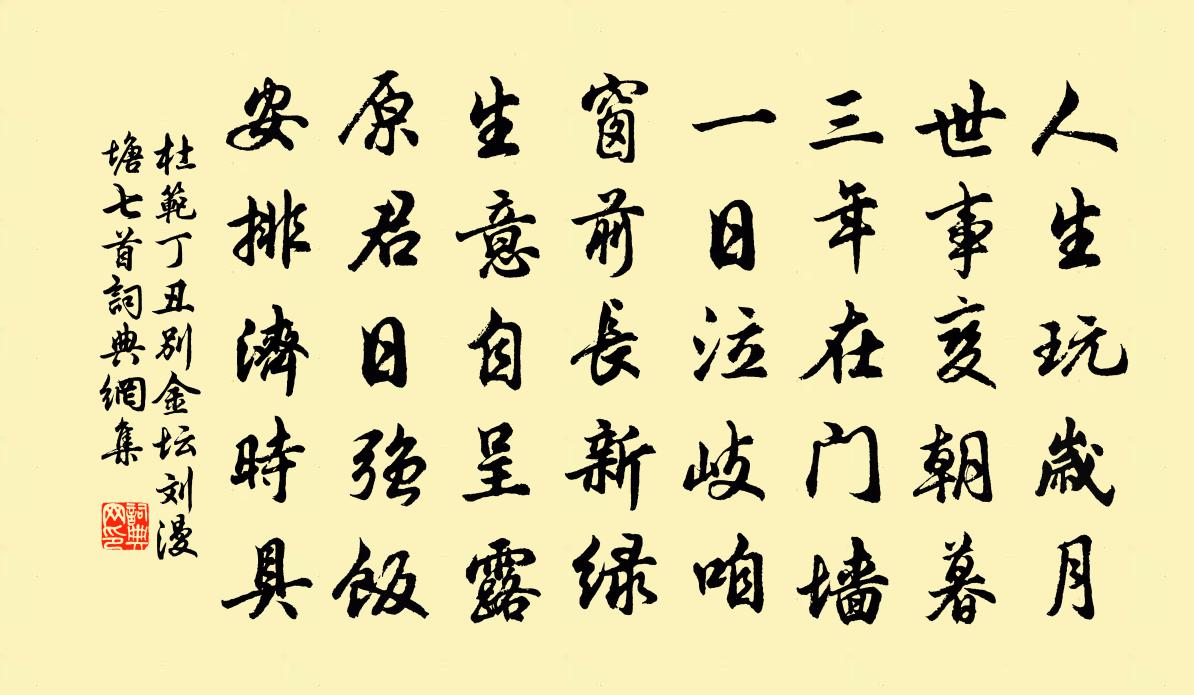 人生玩歲月
世事变朝暮
三年在门墙
一日泣岐咱
窗前長新绿
生意自呈露
原君日强飯
安排濟時具
杜範丁丑別金坛刘漫
塘七首詞典網集
詞典网印